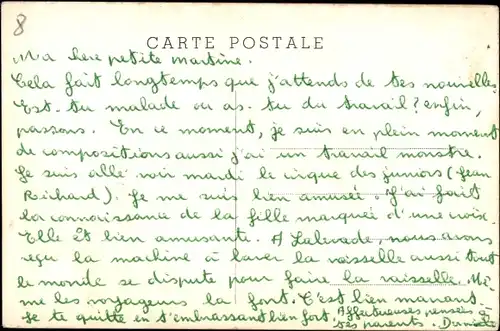 8
CARTE POSTALE
Ma chere petite martine.
Cela fait longtemps que j'attends de tes nouvelles.
Est-tu malade ou as-tu du travail? enfin,
passons. En ce moment, je suis en plein moment
de compositions aussi j'ai un travail monstre.
Je suis allé voir mardi le cirque des juniors (Jean
Richard). Je me suis bien amusée. J'ai fait
la connaissance de la fille marquée d'une croix
Elle est bien amusante. A nous avons
reçu la machine à laver la vaisselle aussi tout
le monde se dispute pour faire la vaisselle. Mê-
me les voyageurs la font. C'est bien marrant.
Je te quitte en t'embrassant bien fort. Affectueuses pensées à
tes parents.